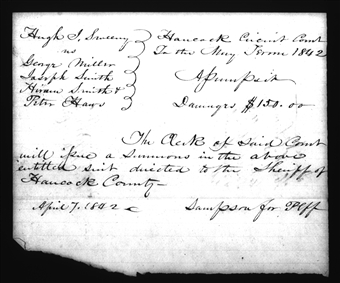 Hugh S. Sweeny } Hancock Circuit Court
vs } To the May Term 1842
George Miller
Joseph Smith } Assumpsit
Hiram Smith &
Peter Haws } Damages $150.00
The Clerk of Said Court
will issue a Summons in the above
entitled suit directed to the Sheriff of
Hancock County—
April 7. 1842 Sampson for Plff